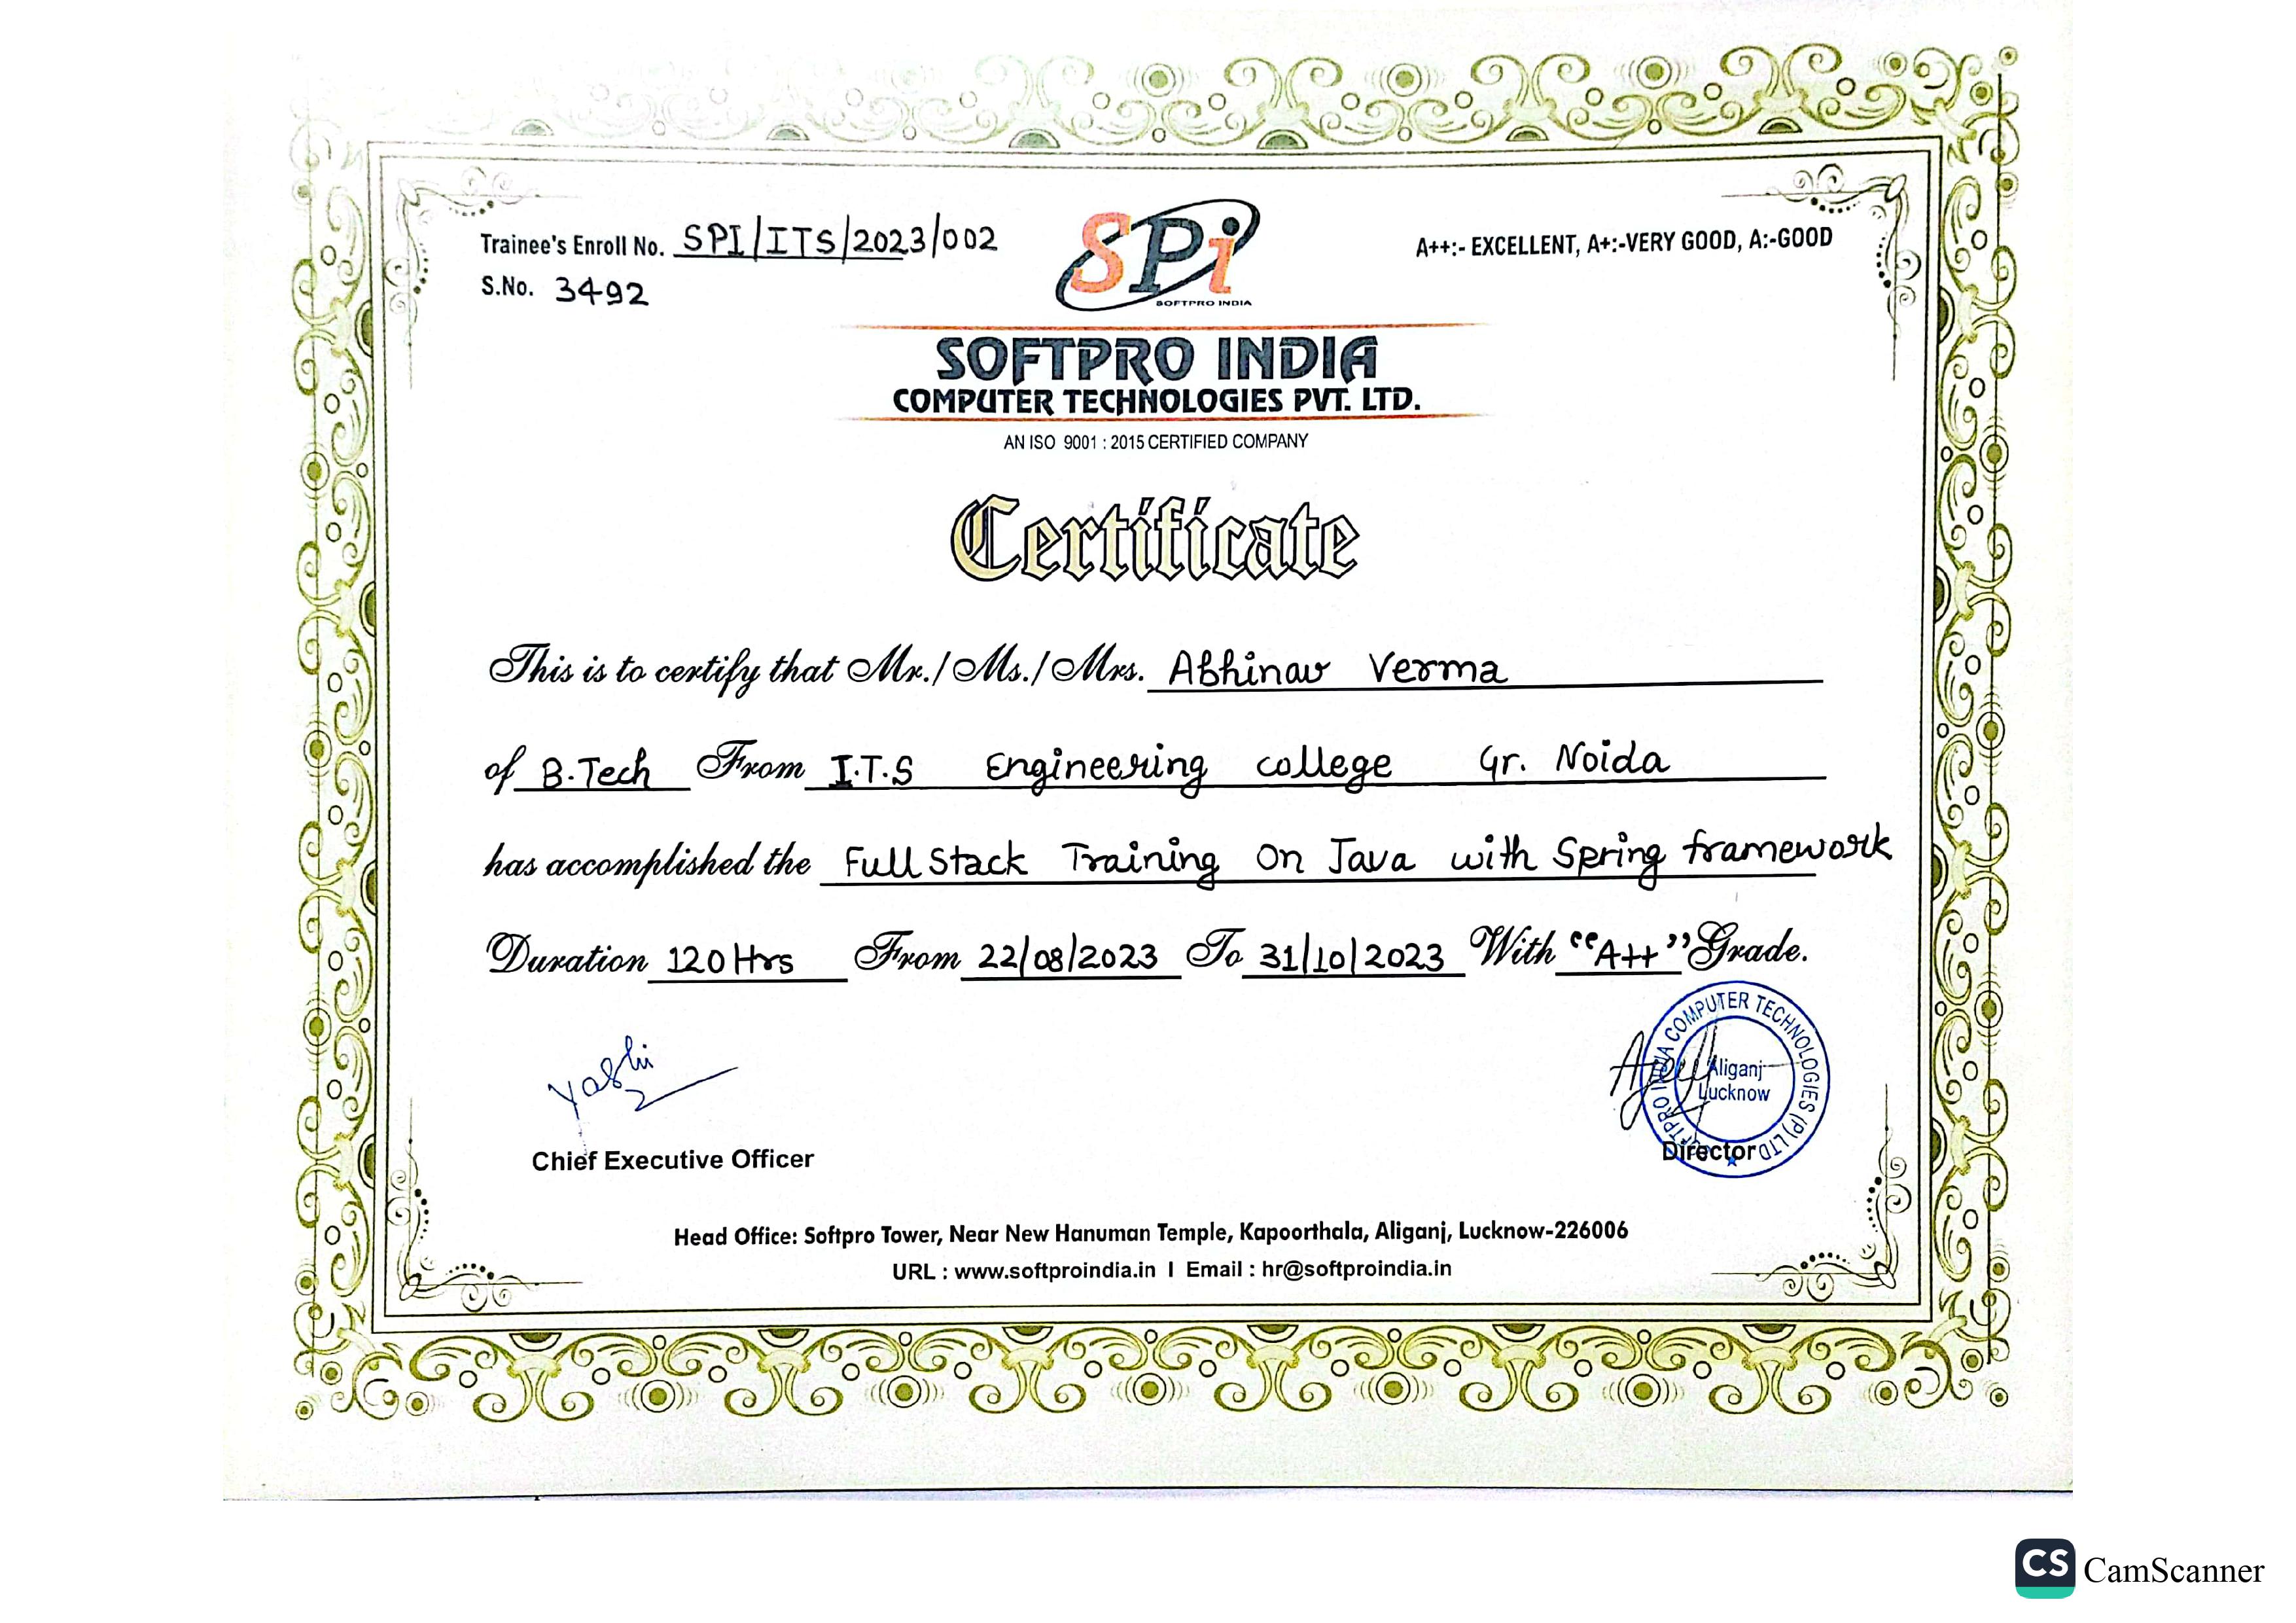 Trainee's Enroll No. SPI/ITS/2023/002
S.No. 3492
SPi
SOFTPRO INDIA
A++:- EXCELLENT, A+:-VERY GOOD, A:-GOOD
SOFTPRO INDIA
COMPUTER TECHNOLOGIES PVT. LTD.
AN ISO 9001 : 2015 CERTIFIED COMPANY
Certificate
This is to certify that Mr./Ms./Mrs. Abhinav Verma
of B.Tech From I.T.S Engineering college Gr. Noida
has accomplished the Full Stack Training On Java with Spring framework
Duration 120 Hrs From 22/08/2023 To 31/10/2023 With "A++" Grade.
Yashi
SOFTPRO INDIA COMPUTER TECHNOLOGIES (P) LTD
Aliganj
Lucknow
Chief Executive Officer
Director
Head Office: Softpro Tower, Near New Hanuman Temple, Kapoorthala, Aliganj, Lucknow-226006
URL : www.softproindia.in I Email : hr@softproindia.in
CS CamScanner